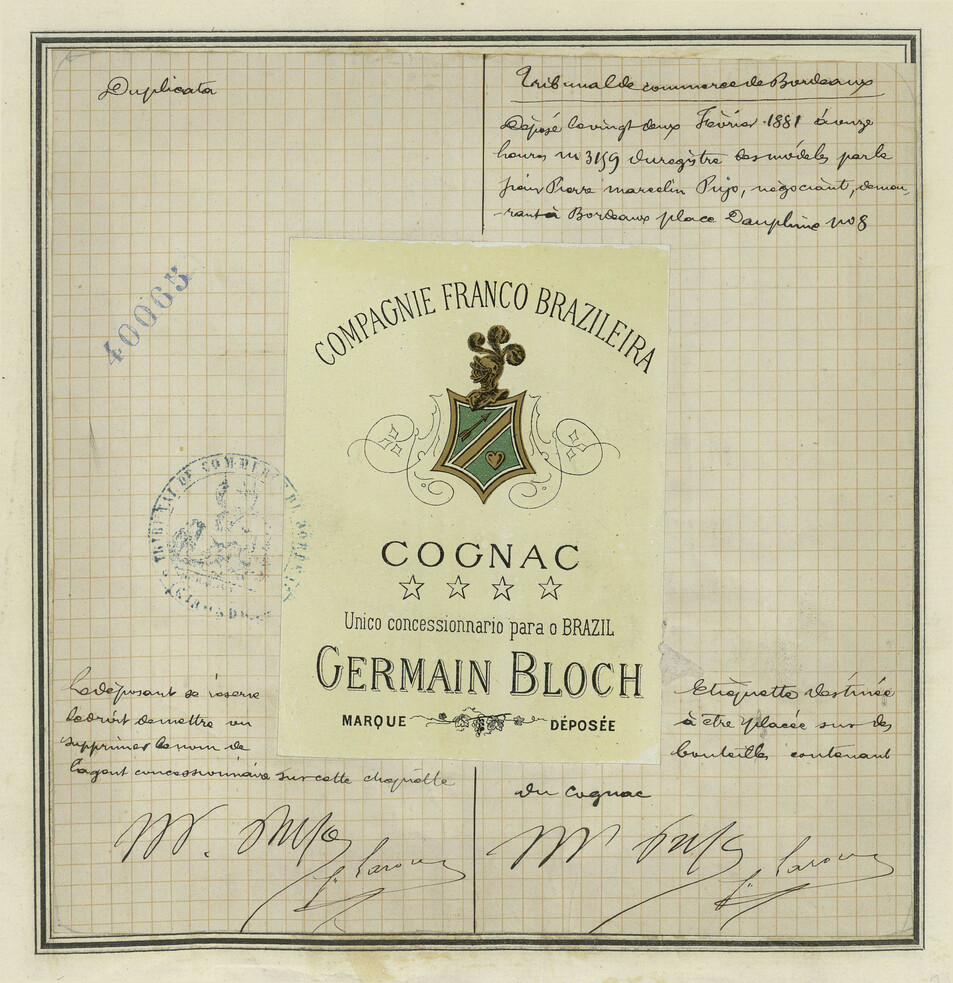 Duplicata
Tribunal de commerce de Bordeaux
Déposé le vingt deux Février 1881 à onze
heures n 3159 du registre des modèles par le
sieur Pierre marcelin Pujo, négociant, demeu-
-rant à Bordeaux place Dauphine no 8
40065
COMPAGNIE FRANCO BRAZILEIRA
TRIBUNAL DE COMMERCE DE BORDEAUX
GIRONDE
COGNAC
Unico concessionnario para o BRAZIL
GERMAIN BLOCH
MARQUE DÉPOSÉE
Le déposant se réserve
le droit de mettre ou
supprimer le nom de
l'agent concessionnaire sur cette etiquette
Etiquette destinée
à etre placée sur des
bouteilles contenant
du Cognac
M. Pujo
M Pujo